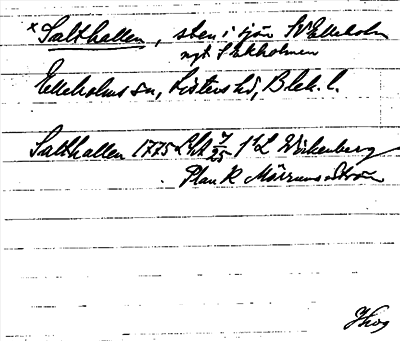 ×Salthallen, sten i sjön SV Elleholm
nyt Ekholmen
Elleholms sn, Listers hd, Blek. l.
Salthallen 1775 LSA 7/25 f 1 L Wirkenberg
Plan K Mörrums ström